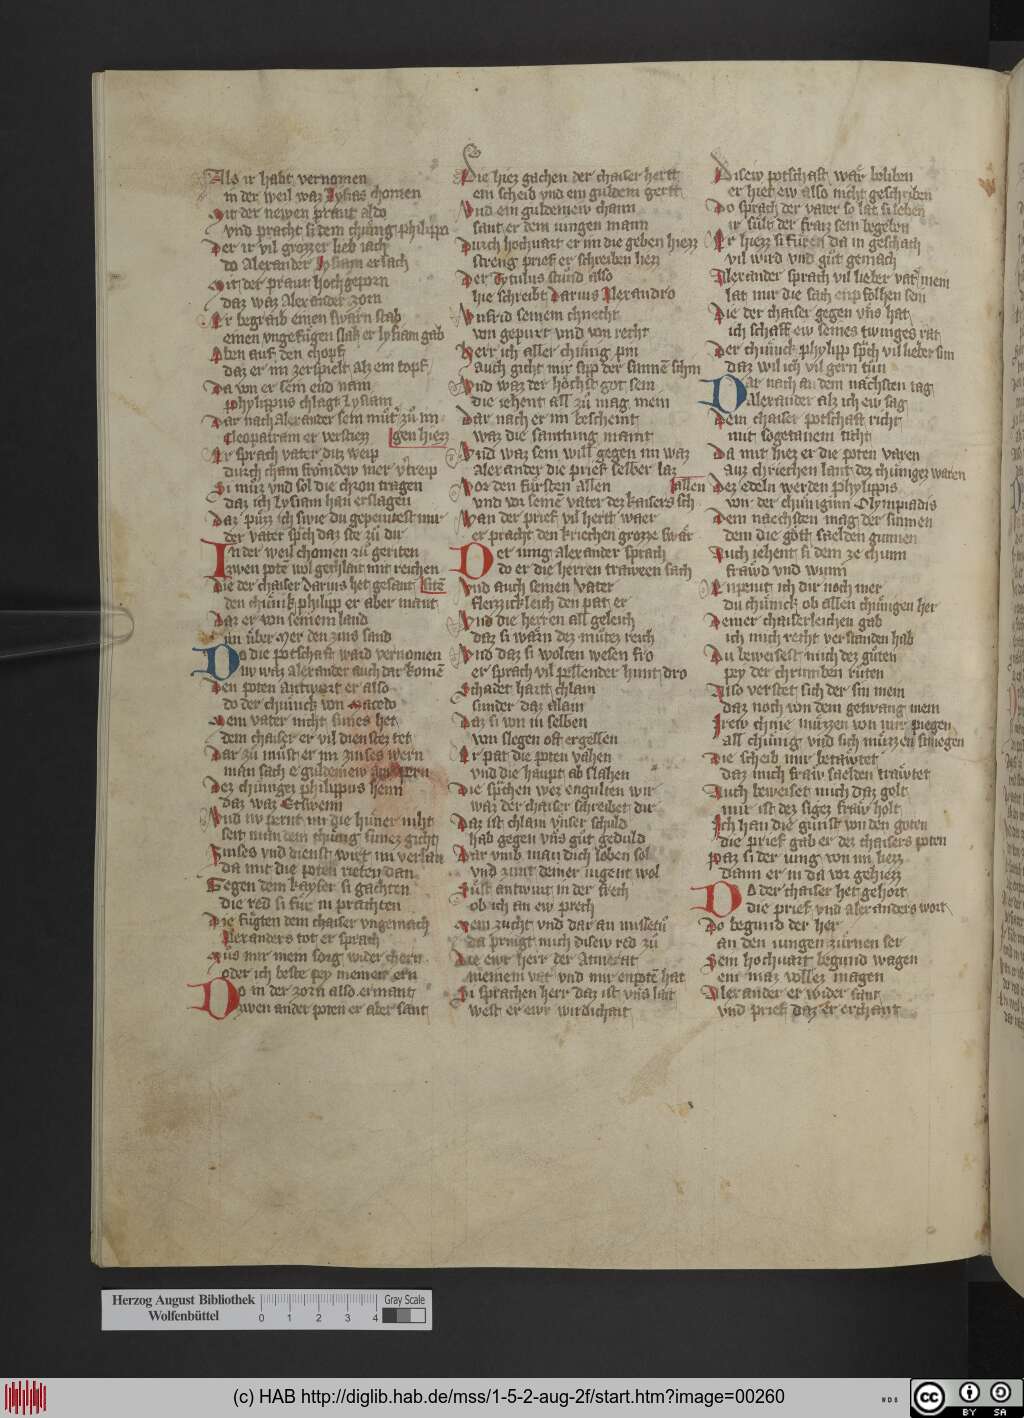 Als ir habt vernomen
in der weil waz Lysias chomen
Mit der newen praut aldo
vnd pracht si dem chúnig philippo
Der ir vil grozzer lieb iach
do Alexander Lysiam ersach
Mit der praut hochgeporn
daz waz Alexander zorn
Er begraib einen swärn stab
einen vngefúgen slak er lysiam gab
Oben auf den chopf
daz er im zerspielt alz ein topf
Da von er sein end nam
phylippus chlagt Lysiam
Dar nach Alexander sein mút zú im
Cleopatram er verstiez
gen hiez
Er sprach vater ditz weip
durch cham frömdew mer vͤtreip
Si múz vnd sol die chron tragen
daz ich Lysiam han erslagen
Daz púzz ich swie du gepeutest mir
der vater spͤch daz ste zú dir
In der weil chomen zú geriten
zwen pote wol gechlait mit reichen
siten
Die der chaiser Darius het gesant
den chúnik philipp er aber mant
Daz er von seinem land
im úber mer den zins sand
Do die potschaft ward vernomen
nw waz alexander auch dar komē
Den poten antwort er also
do der chúnich von Macedo
Mein vater nicht sines het
dem chaiser er vil dienstez tet
Dar zú múst er im zinses wern
man sach e guldeinew
Dez chúniges philippus henn
daz waz Etswenn
Vnd nv pernt im die húner niht
seit man dem chúnig sinez gicht
Zinses vnd dienst wirt im verlan
da mit die poten rieten dan
Gegen dem kayser si gachten
die red si fúr in prachten
Die fúgten dem chaiser vngemach
Alexanders tot er sprach
Mús mir mein sorg wider chern
oder ich beste pey meinen ern
Do in der zorn also ermant
zwen ander poten er aber sant
Die hiez gachen der chaiser hertt
ein scheib vnd ein guldein gertt
Vnd ein guldeinew chann
sant er dem iungen mann
Durch hochuart er im die geben hiezz
streng prief er schreiben liez
Der Tytulus stúnd also
hie schreibt Darius Alexandro
Vnfrid seinem chnecht
von gepurt vnd von recht
Herr ich aller chúnig pin
auch gicht mir sipp der sunnē schin
Vnd waz der höchst got sein
die iehent all zú mag mein
Dar nach er im bescheint
waz die samlung maint
Vnd waz sein will gegen im waz
alexander die prief selber laz
Vor den fúrsten allen
allen
vnd vor seinē vater dez kaisers sch
Wan der prief vil hertt waer
er pracht den kriechen grozze swär
Der iung alexander sprach
do er die herren trawren sach
Vnd auch seinen vater
fleizzickleich den pat er
Vnd die herren all geleich
daz si wärn dez mútez reich
Vnd daz si wolten wesen fro
er sprach vil pellender hunt dro
Schadet hartt chlain
sunder daz alain
Daz si von in selben
von slegen oft ergellen
Er pat die poten vahen
vnd die haupt ab slahen
Die spͤchen wez engulten wir
waz der chaiser schreibet dir
Daz ist chlain vnser schuld
hab gegen vns gút geduld
Dar vmb man dich loben sol
vnd zimt deiner iugent wol
Súst antwurt in der frech
ob ich an ew prech
Mein zucht vnd dar an missetú
da pringt mich disew red zú
Die ewr herr der Amerat
meinem vat͛ vnd mir enpotē hat
Si sprachen herr daz ist vns lait
west er ewr wirdichait
Disew potschaft wär beliben
er hiet ew also nicht geschriben
Do sprach der vater so lat si leben
ir sult der frais sein begeben
Er hiezz si fúren da in geschach
vil wird vnd gút gemach
Alexander sprach vil lieber vat͛ mein
lat mir die sach enpfolhen sein
Die der chaiser gegen vns hat
ich schaff ew seines twinges rat
Der chúnick phylipp spͤch vil lieber sun
daz wil ich vil gern tún
Dar nach an dem nächsten tag
Alexander alz ich ew sag
Dem chaiser potschaft richt
mit sogetanem ticht
Da mit hiez er die poten varen
auz chriechen lant dez chúniges waren
Dez edeln werden phylippis
von der chúniginn Olympiadis
Dem naechsten mag der sunnen
dem die gött saelden gunnen
Auch iehent si dem ze chunn
frawd vnd wunn
Enpewt ich dir noch mer
du chúnick ob allen chúnigen her
Deiner chaiserleichen gab
ich mich recht verstanden hab
Du beweisest mich dez gúten
pey der chrumben rúten
Also verstet sich der sin mein
daz noch von dem getwang mein
Irew chnie múzzen von mir piegen
all chúnig vnd sich múzzen smiegen
Die scheib mir betawtet
daz mich fraw saelden trawtet
Auch beweiset mich daz golt
mir ist dez siges fraw holt
Ich han die gúnst von den goten
die prief gab er dez chaisers poten
Paz si der iung von im liezz
dann er in da vor gehiezz
Do der chaiser het gehort
die prief vnd alexanders wort
Do begund der her
an den iungen zúrnen ser
Sein hochuart begund wagen
ein maz vollez magen
Alexander er wider sant
vnd prief daz er erchant
Herzog August Bibliothek
Wolfenbüttel
0 1 2 3 4
Gray Scale
(c) HAB http://diglib.hab.de/mss/1-5-2-aug-2f/start.htm?image=00260
WDB
cc BY SA